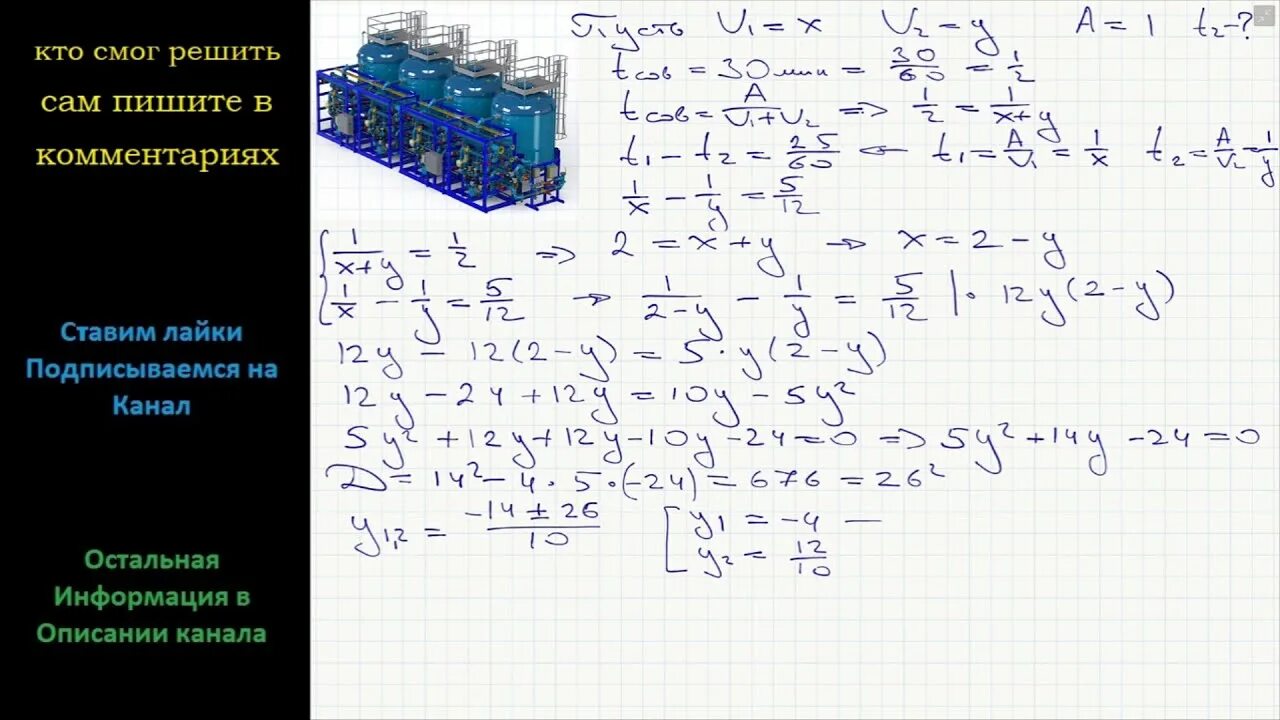 кто смог решить
сам пишите в
комментариях
Ставим лайки
Подписываемся на
Канал
Остальная
Информация в
Описании канала
Пусть V₁ = x V₂ = y A = 1 t₂ - ?
tсов = 30 мин = 30/60 = 1/2
tсов = A/(V₁+V₂) => 1/2 = 1/(x+y)
t₁ - t₂ = 25/60 ← t₁ = A/V₁ = 1/x t₂ = A/V₂ = 1/y
1/x - 1/y = 5/12
{ 1/(x+y) = 1/2 => 2 = x + y → x = 2 - y
1/x - 1/y = 5/12 → 1/(2-y) - 1/y = 5/12 | · 12y(2-y)
12y - 12(2-y) = 5·y(2-y)
12y - 24 + 12y = 10y - 5y²
5y² + 12y + 12y - 10y - 24 = 0 => 5y² + 14y - 24 = 0
D = 14² - 4·5·(-24) = 676 = 26²
y₁,₂ = (-14 ± 26)/10 [ y₁ = -4 —
y₂ = 12/10